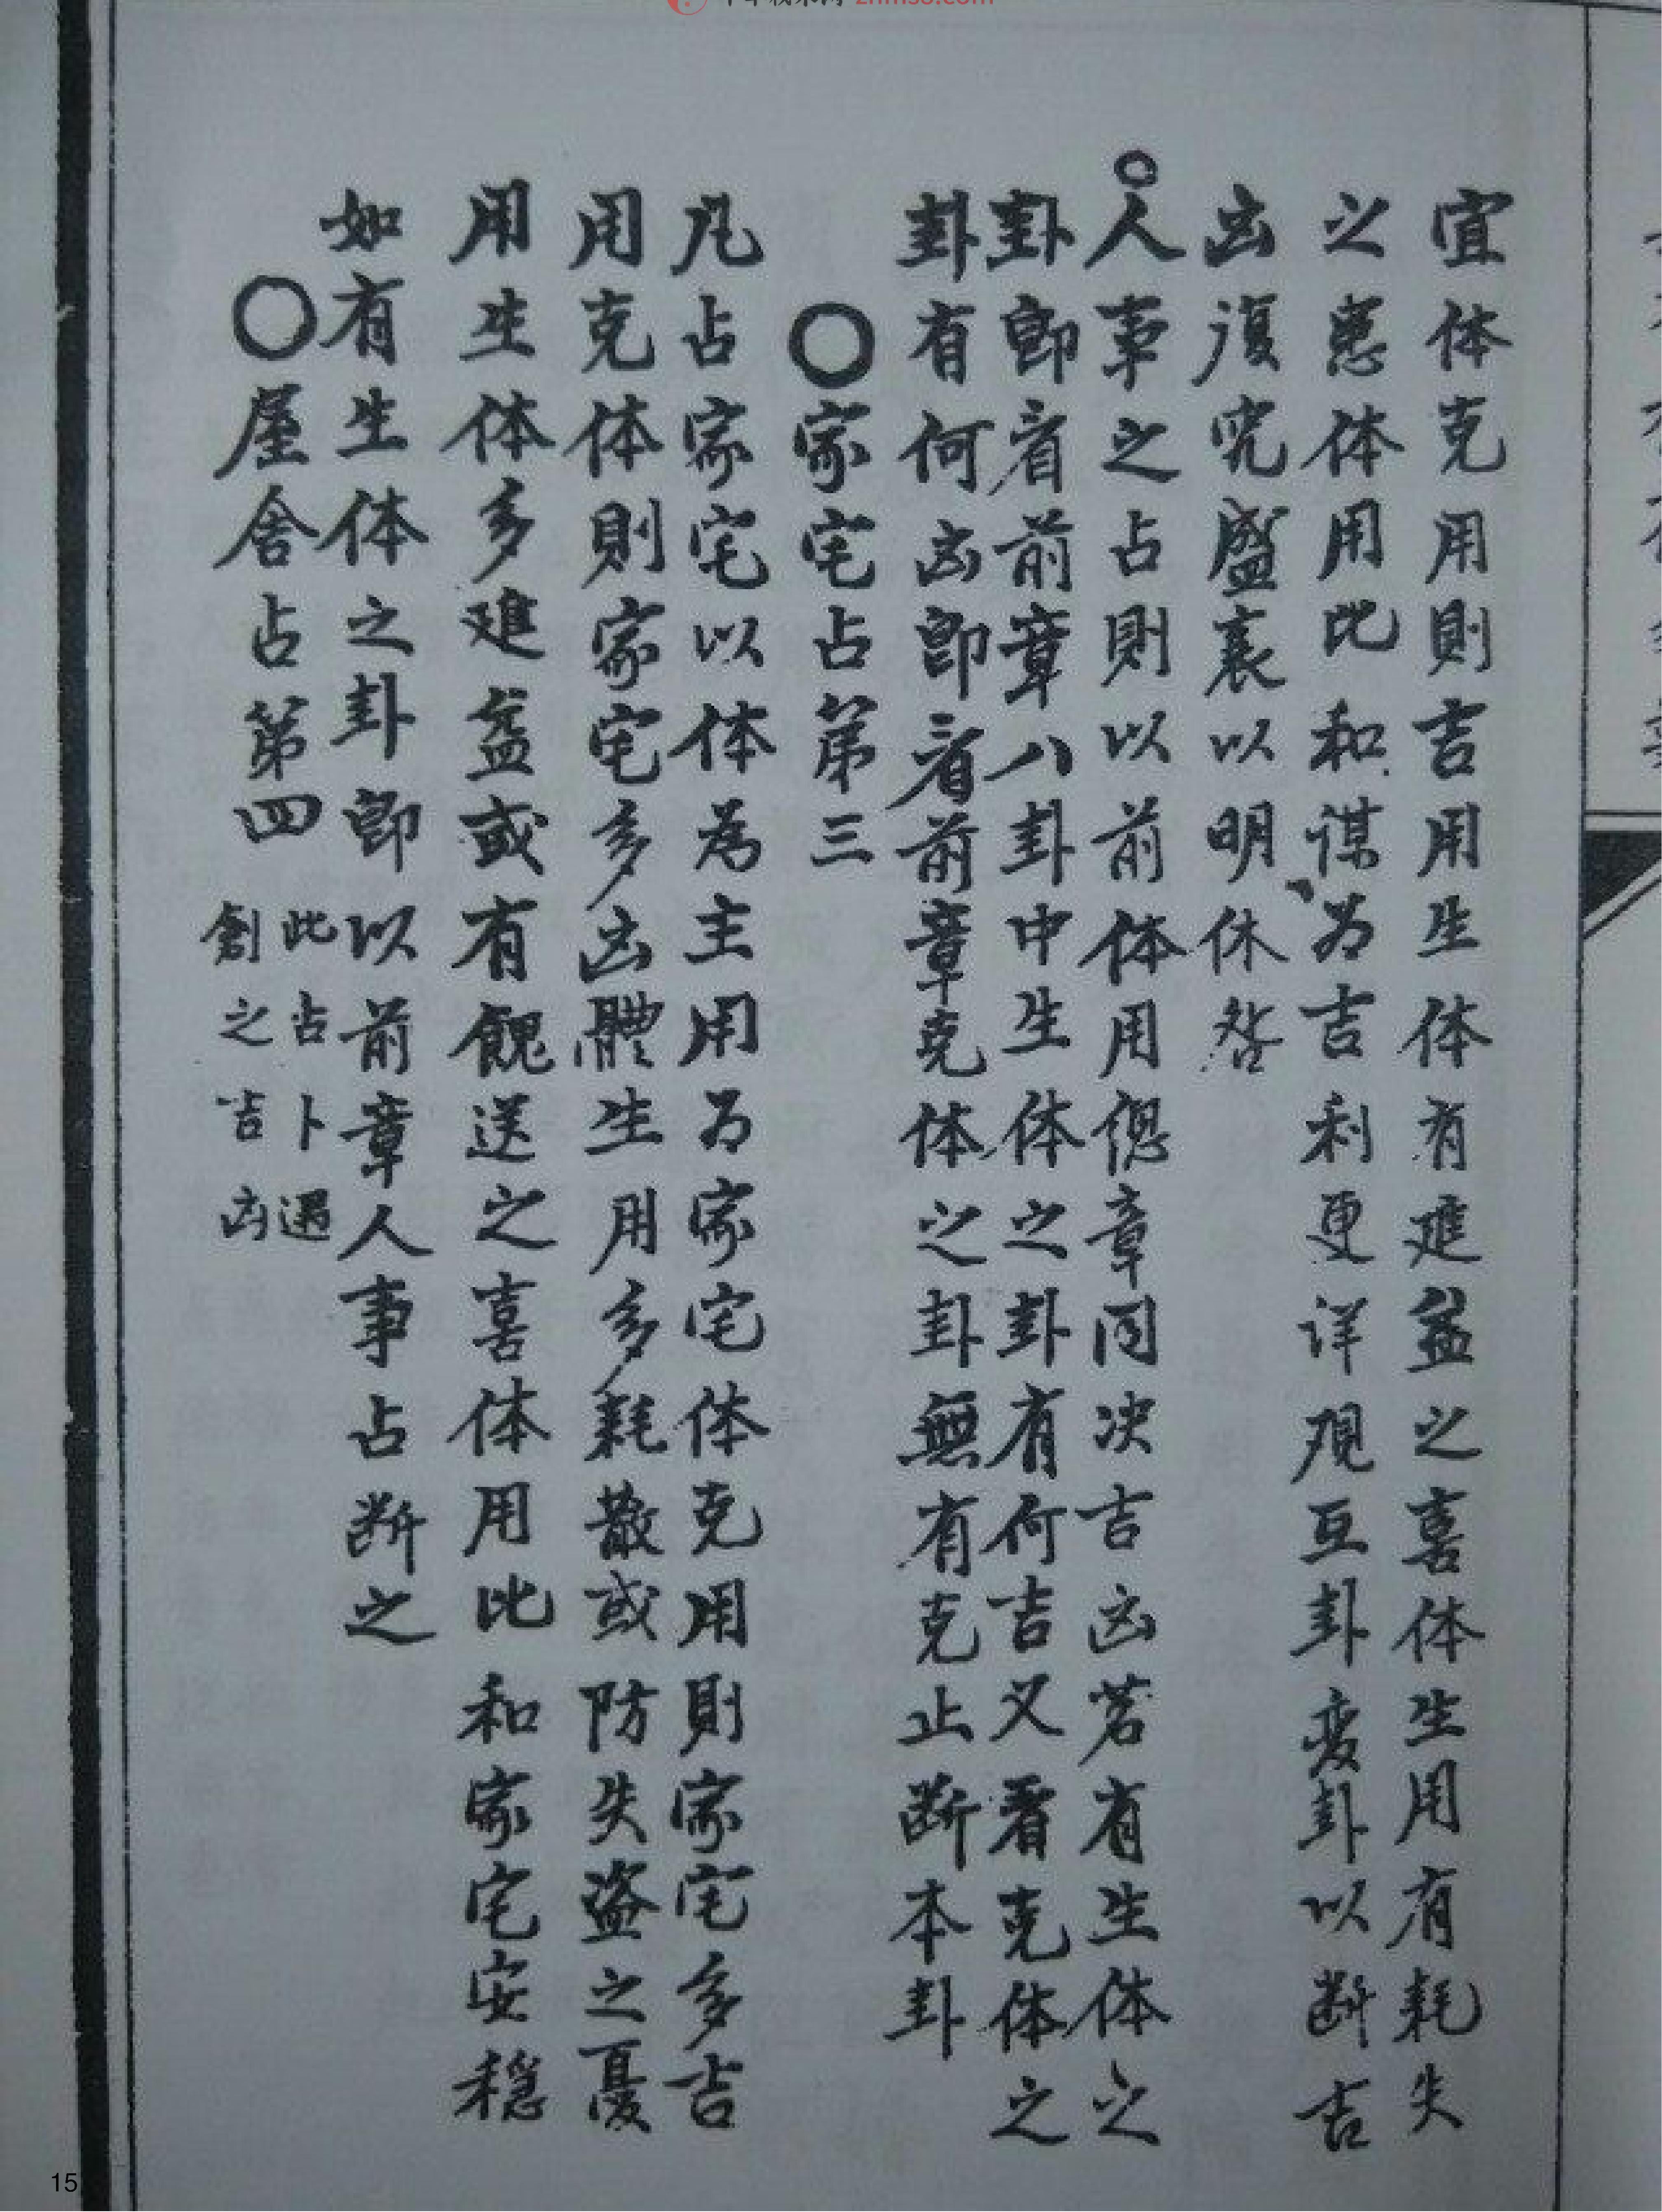 宜体克用則吉用生体有進益之喜体生用有耗失
之患体用比和謀为吉利更详观互卦变卦以断吉
凶復究盛衰以明休咎
○人事之占則以前体用總章同决吉凶若有生体之
卦即看前章八卦中生体之卦有何吉又看克体之
卦有何凶即看前章克体之卦無有克止断本卦
○家宅占第三
凡占家宅以体為主用为家宅体克用則家宅多吉
用克体則家宅多凶體生用多耗散或防失盗之憂
用生体多進益或有餽送之喜体用比和家宅安穏
如有生体之卦即以前章人事占断之
○屋舍占第四
此占卜遇
創之吉凶
15